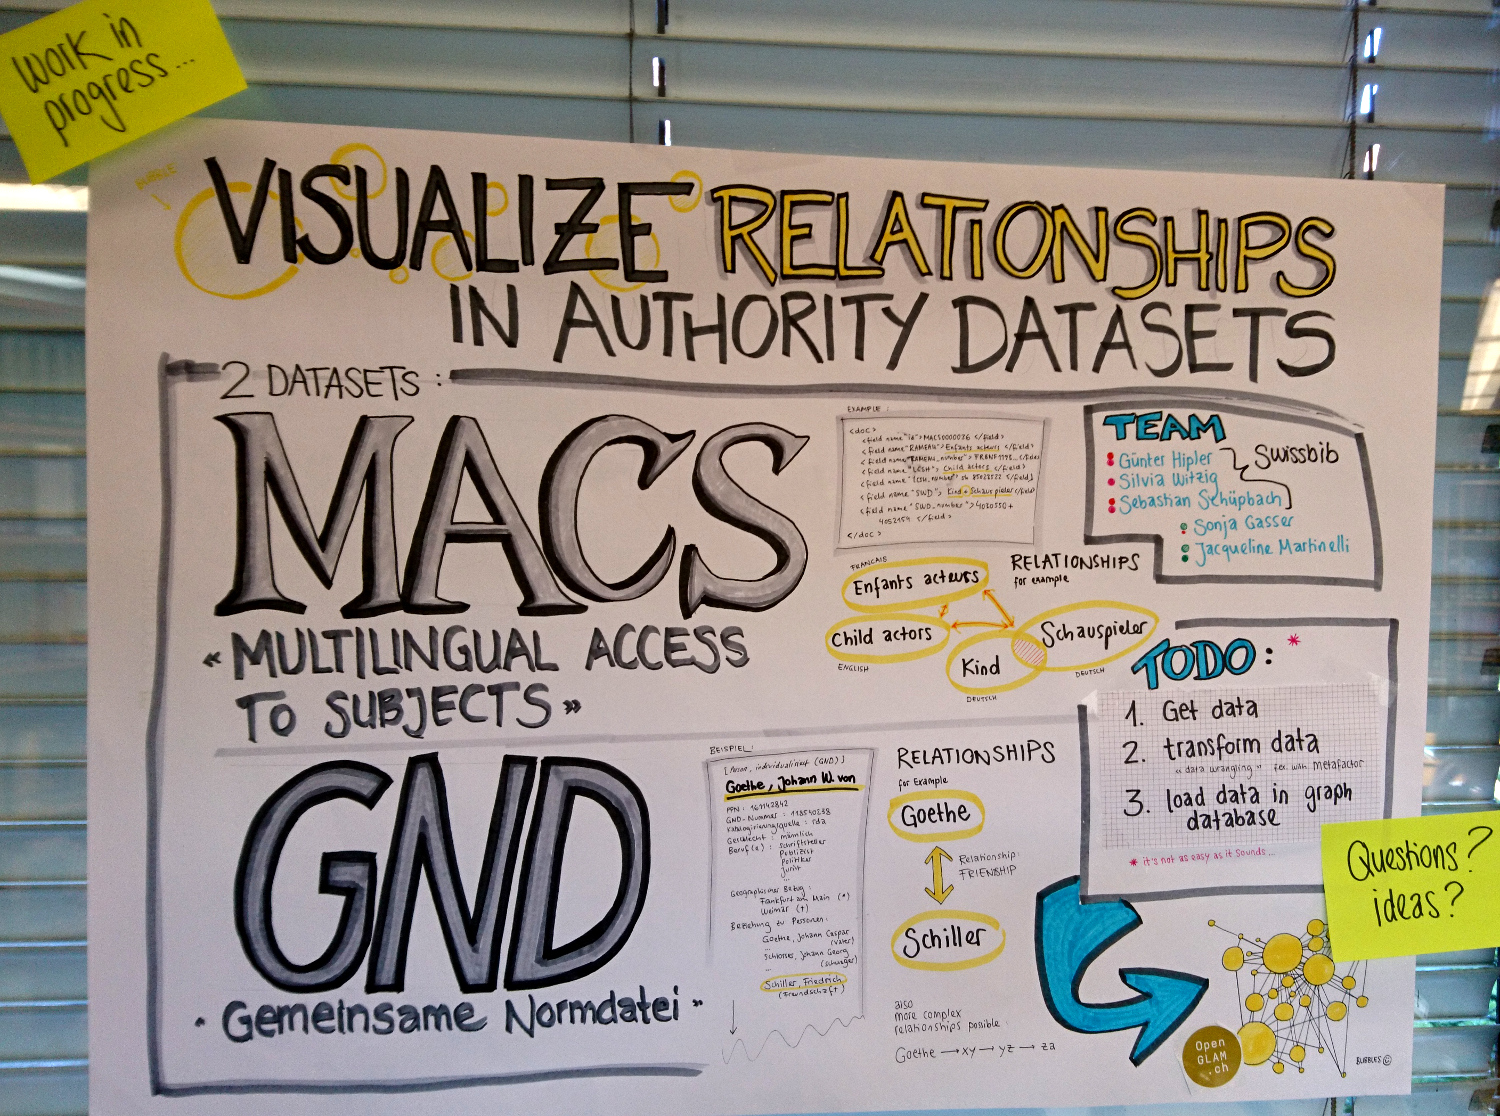 Work in
progress...
BUBBLE
VISUALIZE RELATIONSHIPS
IN AUTHORITY DATASETS
2 DATASETS :
MACS
« MULTILINGUAL ACCESS
TO SUBJECTS »
EXAMPLE:
<doc>
<field name="id">MACS0000036 </field>
<field name="RAMEAU">Enfants acteurs </field>
<field name="RAMEAU_number">
<field name="LCSH"> Child actors </field>
<field name="LCSH_number">
<field name="SWD"> Kind + Schauspieler</field>
<field name="SWD_number">4030550+
4052154 </field>
</doc>
RELATIONSHIPS
for example
FRANCAIS
Enfants acteurs
Child actors
ENGLISH
Kind
DEUTSCH
Schauspieler
DEUTSCH
TEAM
Günter Hipler
Silvia Witzig
Sebastian Schüpbach
Swissbib
Sonja Gasser
Jacqueline Martinelli
TODO: *
1. Get data
2. transform data
"data wrangling" for ex. with metafactor
3. load data in graph
database
* it's not as easy as it sounds...
GND
" Gemeinsame Normdatei "
BEISPIEL:
[Person, individualisiert (GND)]
Goethe, Johann W. von
PPN: 161142842
GND-Nummer: 118540238
Katalogisierungsquelle: rda
Geschlecht: männlich
Beruf(e): Schriftsteller
Publizist
Politiker
Jurist
...
Geographischer Bezug:
Frankfurt am Main (*)
Weimar (†)
Beziehung zu Personen:
Goethe, Johann Caspar
(Vater)
...
Schlosser, Johann Georg
(Schwager)
...
Schiller, Friedrich
(Freundschaft)
RELATIONSHIPS
for Example
Goethe
Relationship:
FRIENDSHIP
Schiller
also
more complex
relationships possible:
Goethe → xy → yz → za
Questions?
ideas?
Open
GLAM
.ch
BUBBLES ©